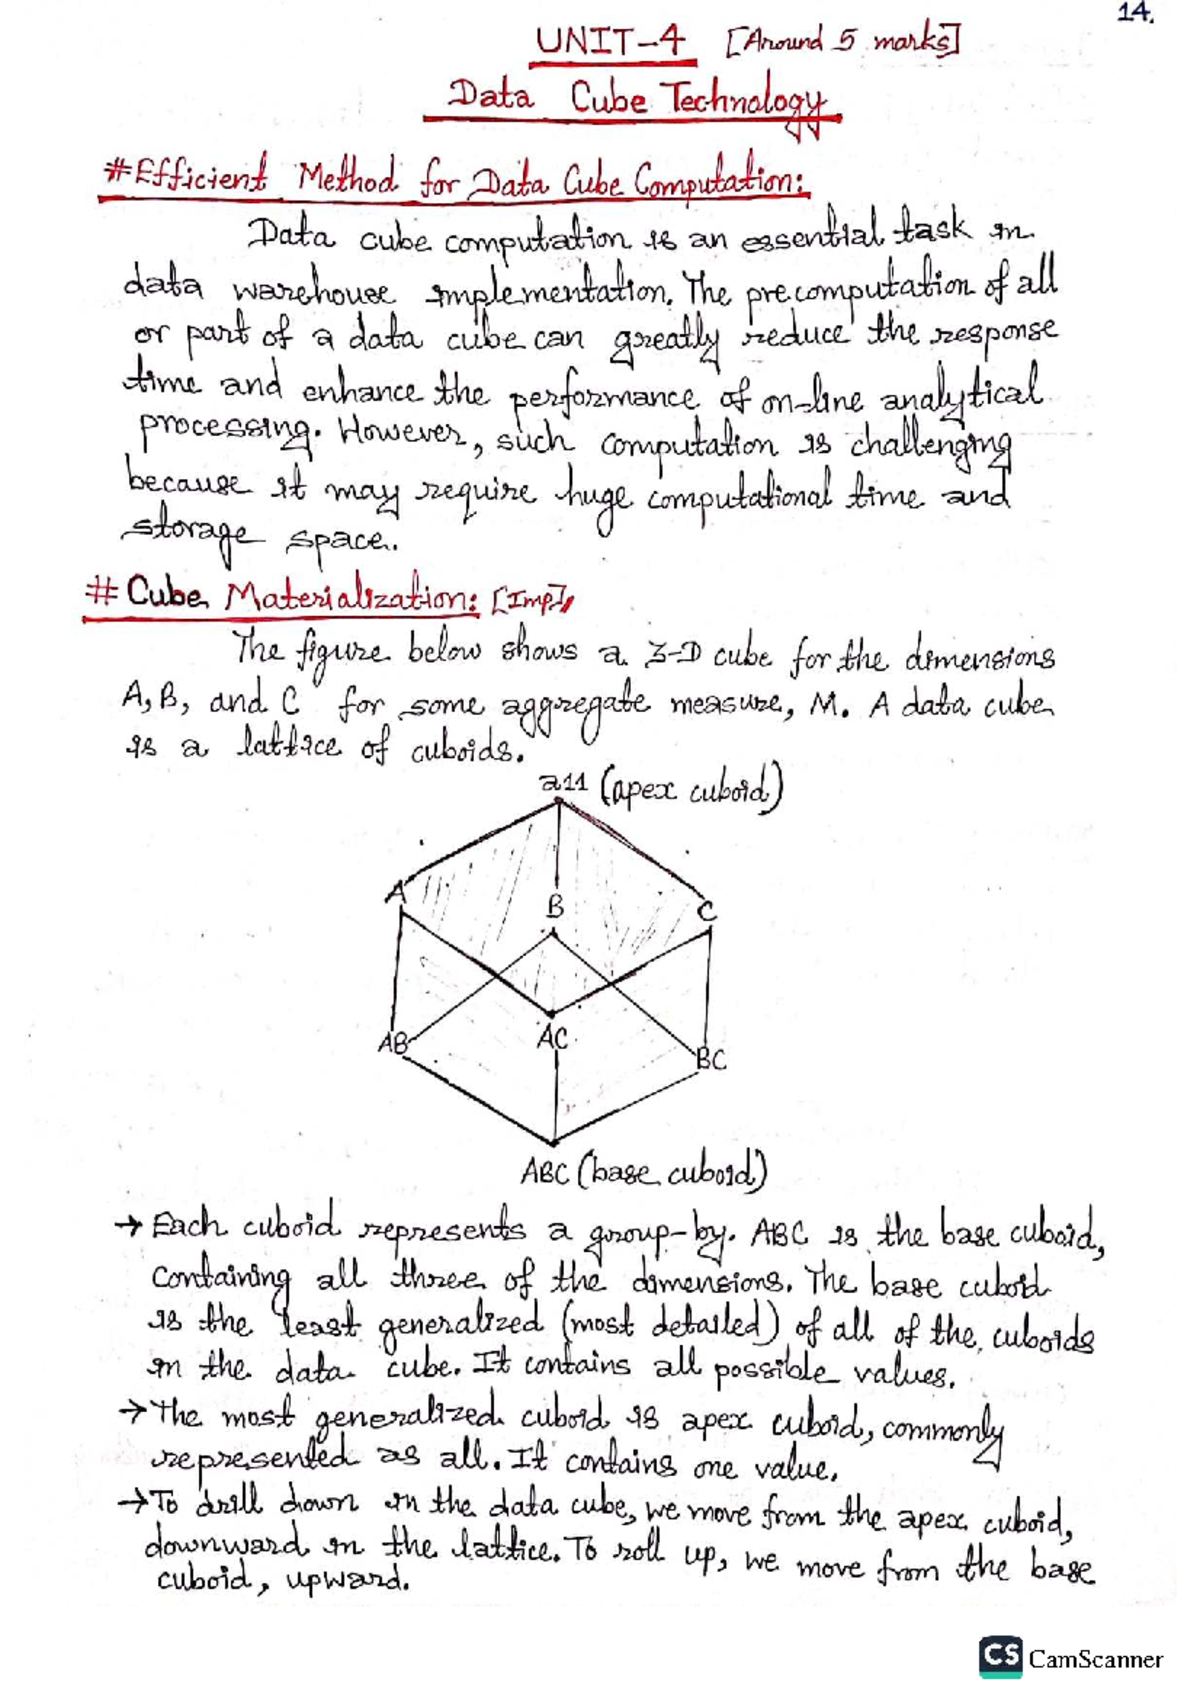 14.
UNIT-4 [Around 5 marks]
Data Cube Technology
#Efficient Method for Data Cube Computation:
Data cube computation is an essential task in
data warehouse implementation. The precomputation of all
or part of a data cube can greatly reduce the response
time and enhance the performance of on-line analytical
processing. However, such computation is challenging
because it may require huge computational time and
storage space.
# Cube Materialization: [Imp]
The figure below shows a 3-D cube for the dimensions
A, B, and C for some aggregate measure, M. A data cube
is a lattice of cuboids.
all (apex cuboid)
A
B
C
AB
AC
BC
ABC (base cuboid)
→ Each cuboid represents a group-by. ABC is the base cuboid,
containing all three of the dimensions. The base cuboid
is the least generalized (most detailed) of all of the cuboids
in the data cube. It contains all possible values.
→ The most generalized cuboid is apex cuboid, commonly
represented as all. It contains one value.
→ To drill down in the data cube, we move from the apex cuboid,
downward in the lattice. To roll up, we move from the base
cuboid, upward.
CS CamScanner